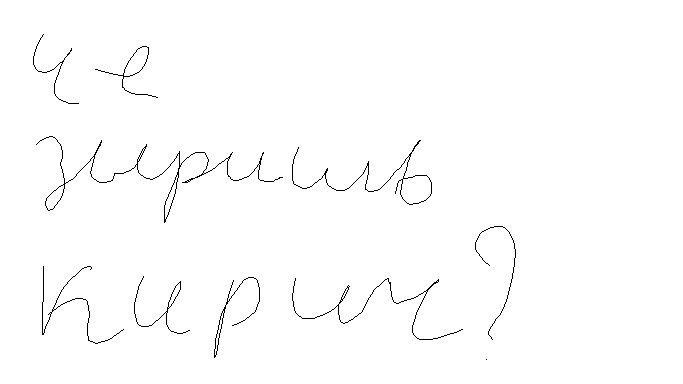 че
зыришь
кирич?